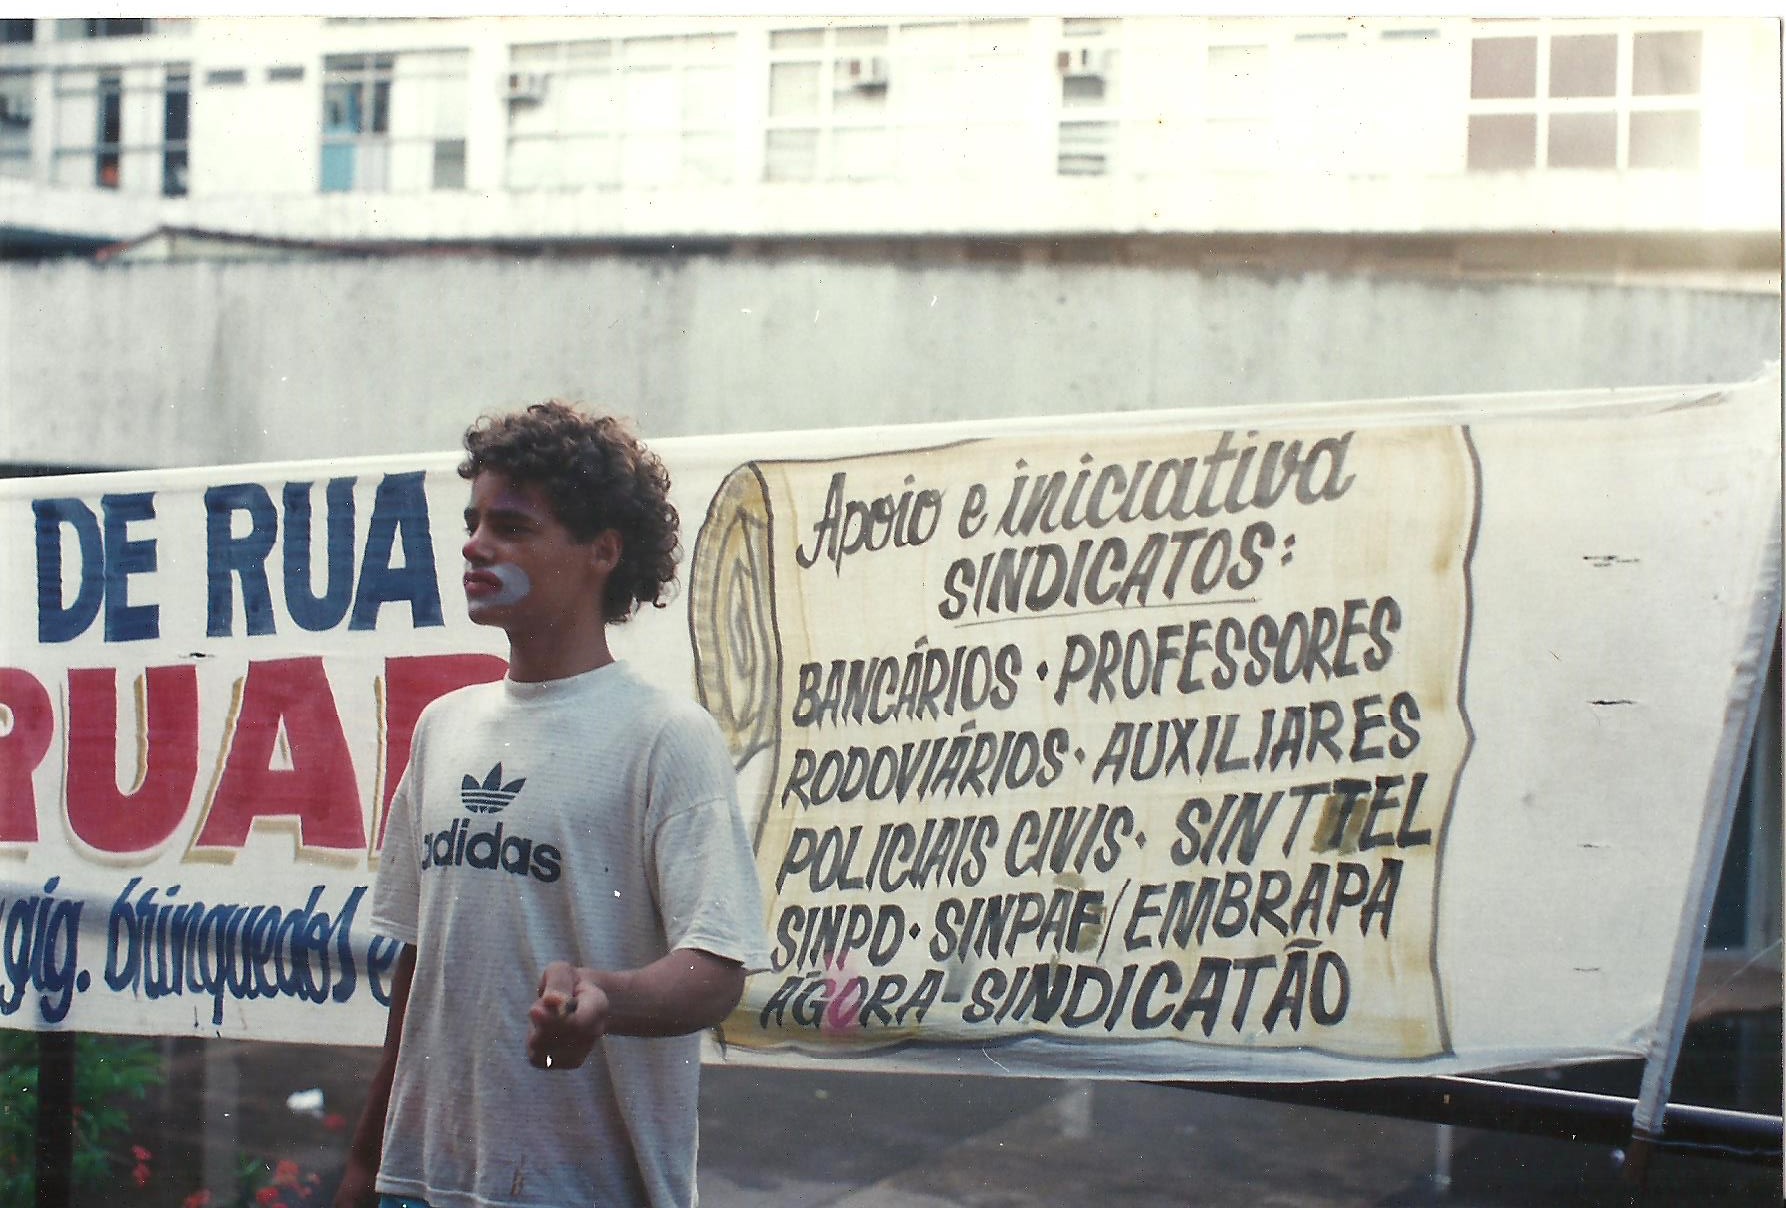 DE RUA
RUAR
gig. brinquedos e
adidas
Apoio e iniciativa
SINDICATOS:
BANCÁRIOS · PROFESSORES
RODOVIÁRIOS · AUXILIARES
POLICIAIS CIVIS · SINTTEL
SINPD · SINPAF/EMBRAPA
AGORA - SINDICATÃO